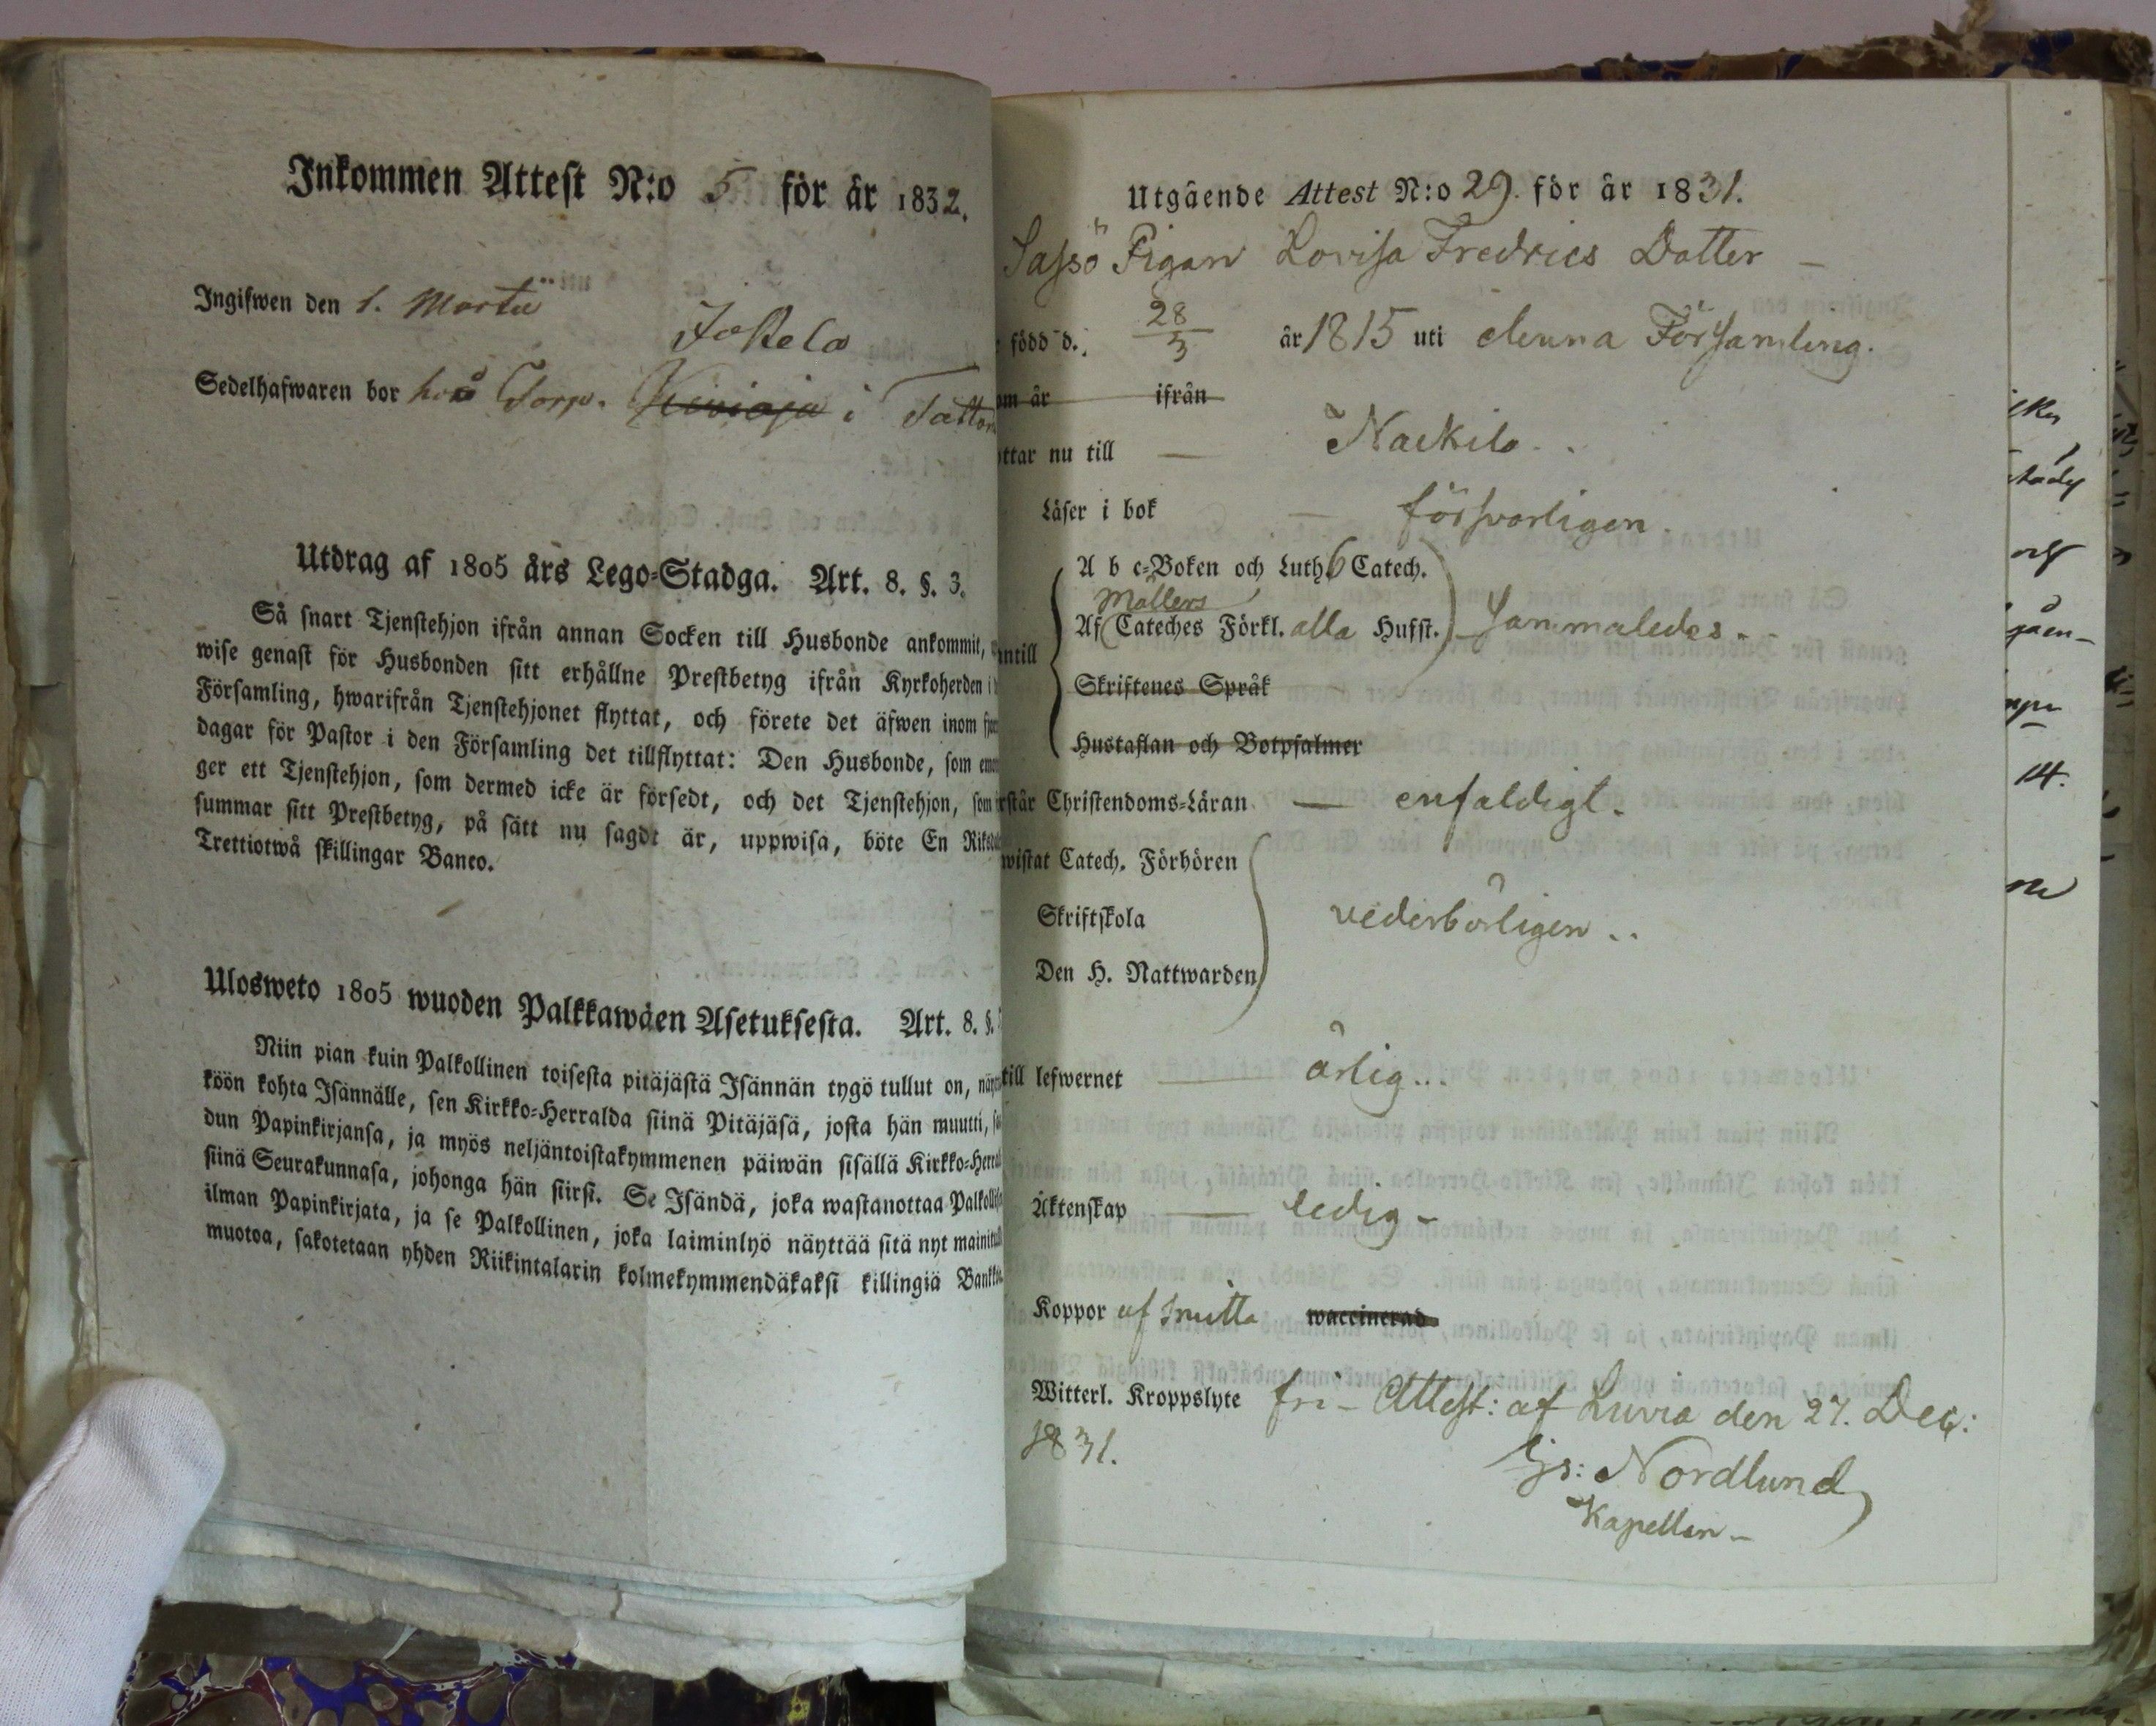 Inkommen Attest N:o 5 för år 1832.
Ingifwen den 1. Martii
Jokela
Sedelhafwaren bor hos Torp. Kiviaja i Tatta
Utdrag af 1805 års Lego-Stadga. Art. 8. §. 3.
Så snart Tjenstehjon ifrån annan Socken till Husbonde ankommit,
wise genast för Husbonden sitt erhållne Prestbetyg ifrån Kyrkoherden i
Församling, hwarifrån Tjenstehjonet flyttat, och förete det äfwen inom
dagar för Pastor i den Församling det tillflyttat: Den Husbonde, som
ger ett Tjenstehjon, som dermed icke är försedt, och det Tjenstehjon, som
summar sitt Prestbetyg, på sätt nu sagdt är, uppwisa, böte En Riksdal
Trettiotwå skillingar Banco.
Ulosweto 1805 wuoden Palkkawäen Asetuksesta. Art. 8. §.
Niin pian kuin Palkollinen toisesta pitäjästä Isännän tygö tullut on,
köön kohta Isännälle, sen Kirkko-Herralda siinä Pitäjäsä, josta hän muutti,
dun Papinkirjansa, ja myös neljäntoistakymmenen päiwän sisällä Kirkko-Herra
siinä Seurakunnasa, johonga hän siirsi. Se Isändä, joka wastanottaa Palkollis
ilman Papinkirjata, ja se Palkollinen, joka laiminlyö näyttää sitä nyt mainitulla
muotoa, sakotetaan yhden Riikintalarin kolmekymmendäkaksi killingiä Bankko
Utgående Attest N:o 29. för år 1831.
Sassö Pigan Lovisa Fredrics Dotter –
född d. 28/3 år 1815 uti denna Församling.
om år ifrån
ttar nu till — Nackila..
Läser i bok — försvarligen.
A b c-Boken och Luth. Catech.
Möllers
Af Cateches Förkl. alla Hufst. Sammaledes.
intill
Skriftenes Språk
Hustaflan och Botpsalmer
rstår Christendoms-Läran — enfaldigt.
wistat Catech. Förhören
Skriftskola vederbörligen..
Den H. Nattwarden
till lefwernet — ärlig...
Äktenskap — ledig –
Koppor af smitta waccinerad
Witterl. Kroppslyte fri – Attest: af Luvia den 27. Dec:
1831.
Gs: Nordlund
Kapellan –
14.